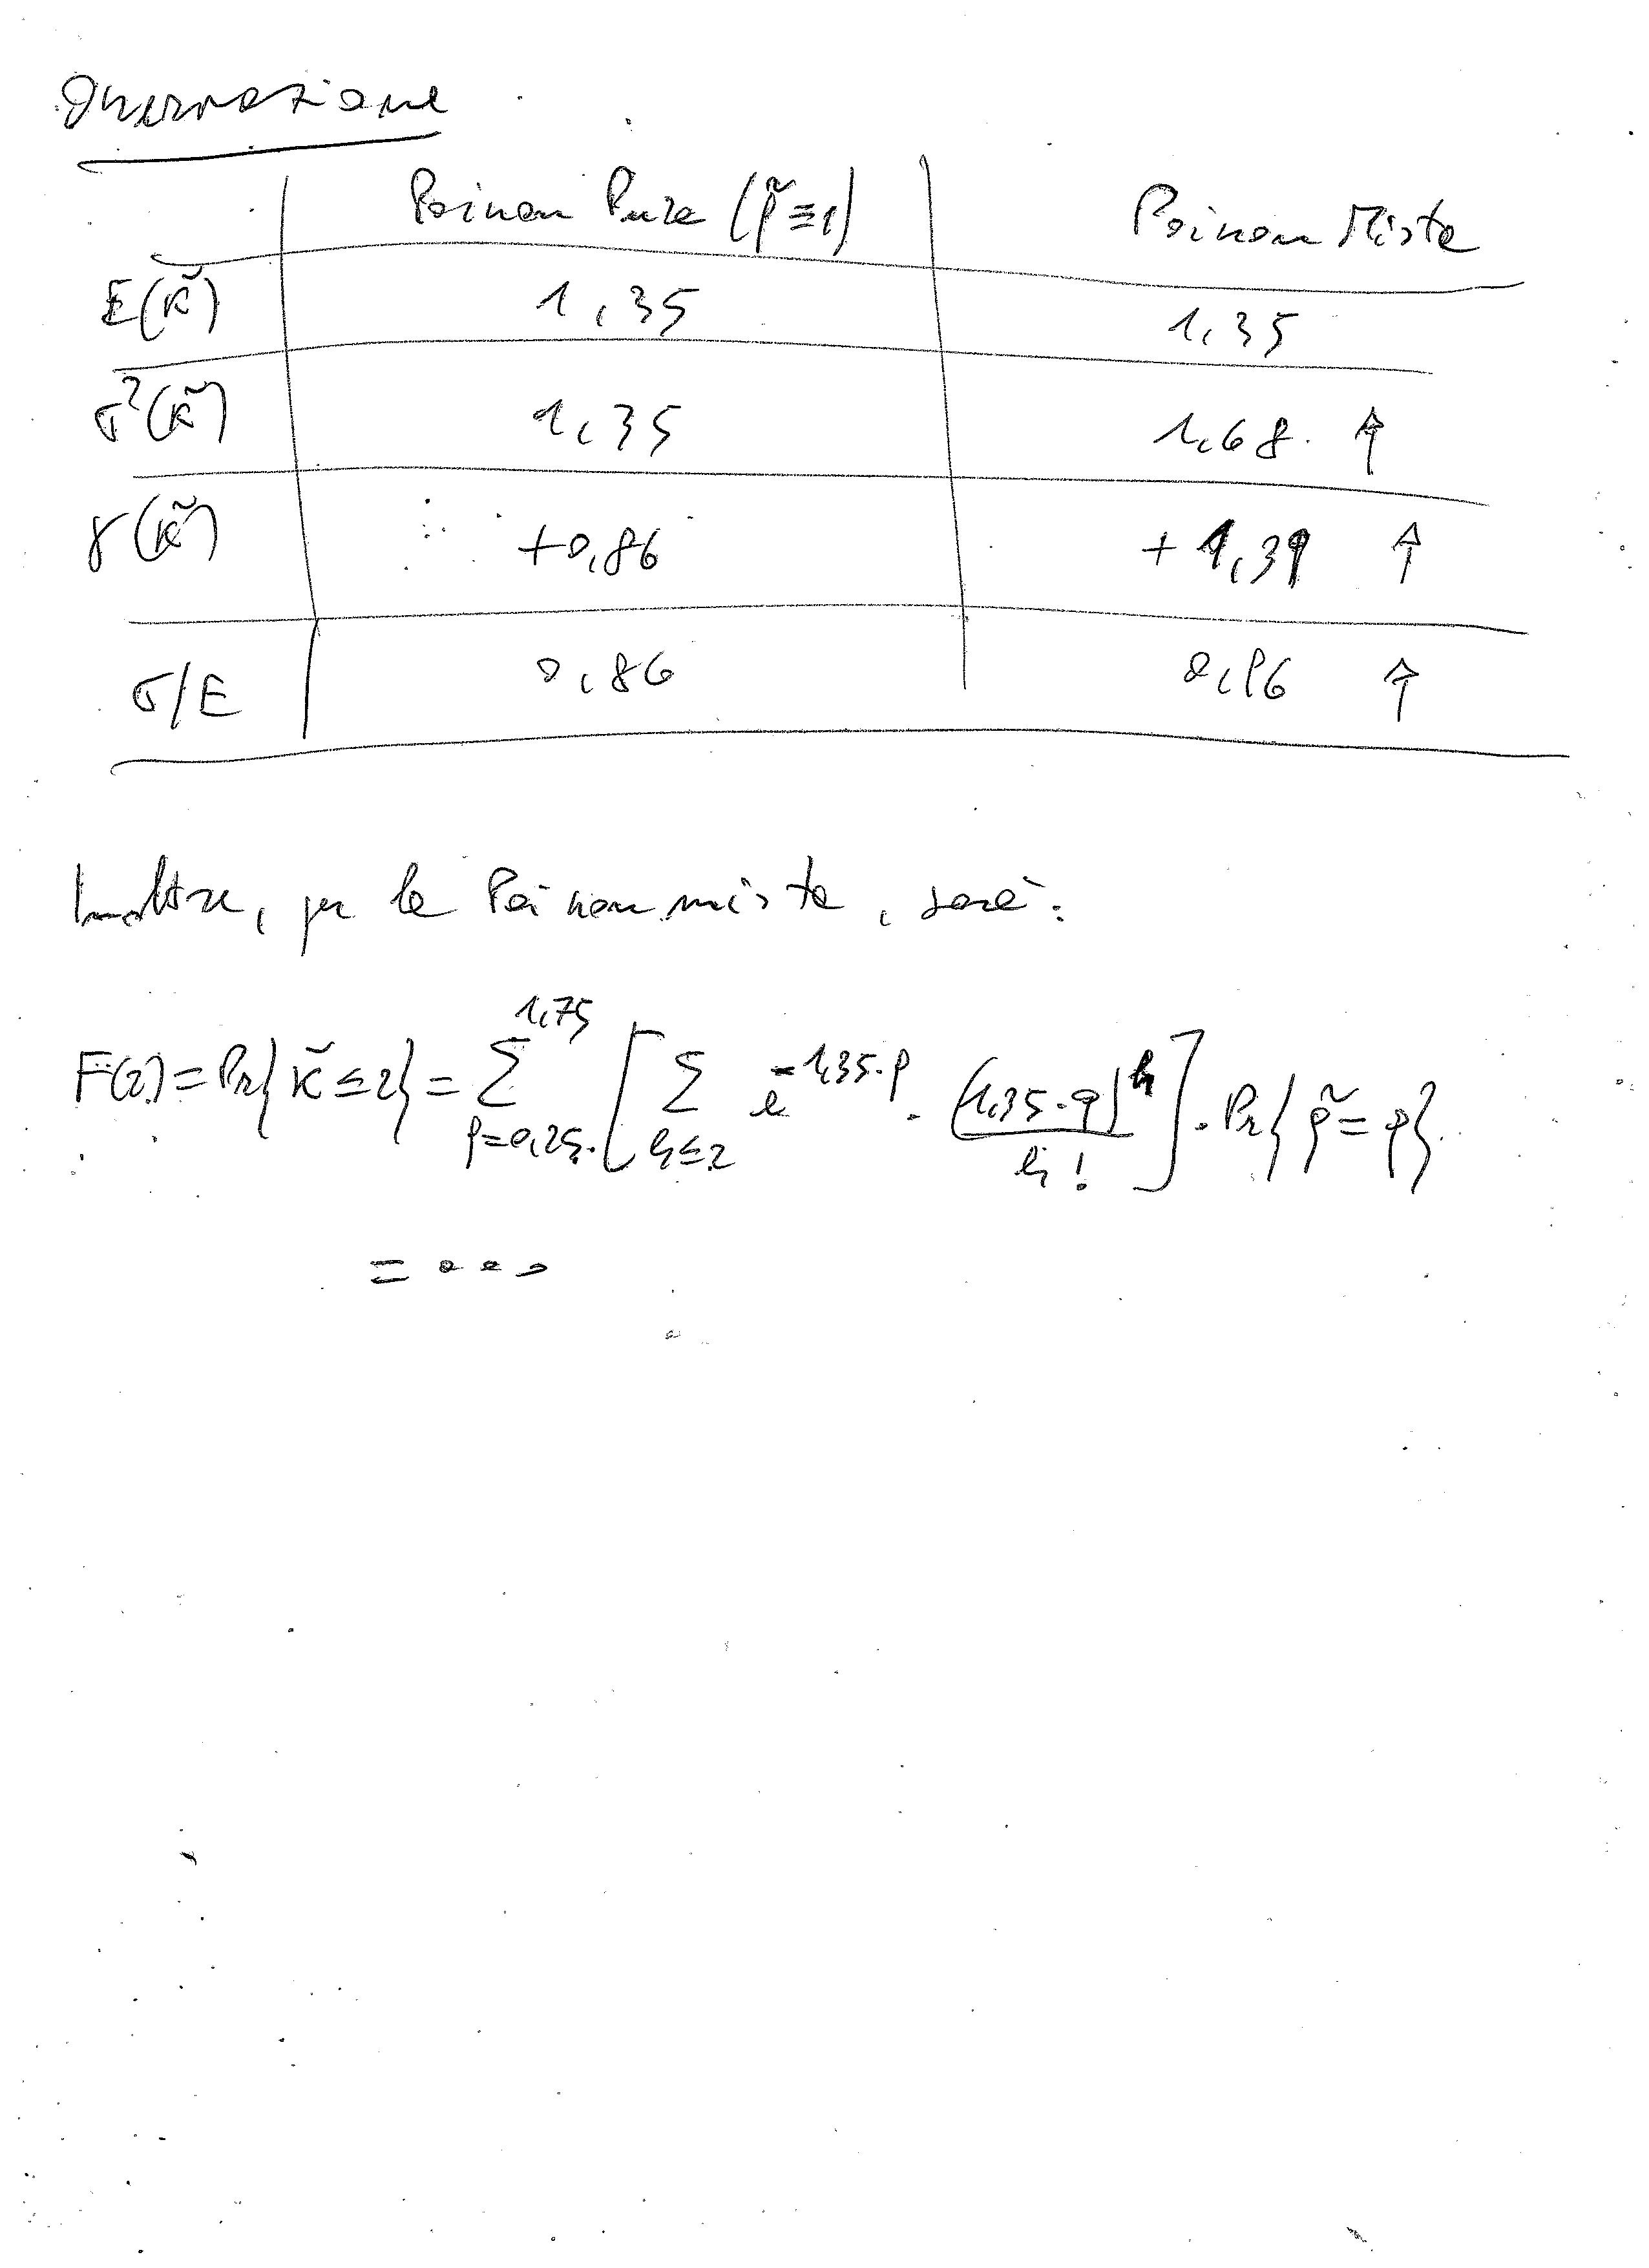 Osservazione
Poisson Pura (q̃ ≡ 1) Poisson Mista
E(k̃) 1,35 1,35
σ²(k̃) 1,35 1,68 ↑
γ(k̃) +0,86 +1,39 ↑
σ/E 0,86 0,96 ↑
Inoltre, per la Poisson mista, sarà:
F(2) = Pr{k̃ ≤ 2} = ∑_{q=0,25}^{1,75} [ ∑_{h≤2} e^{-1,35·q} · (1,35·q)^h / h! ] · Pr{q̃ = q}
= ...